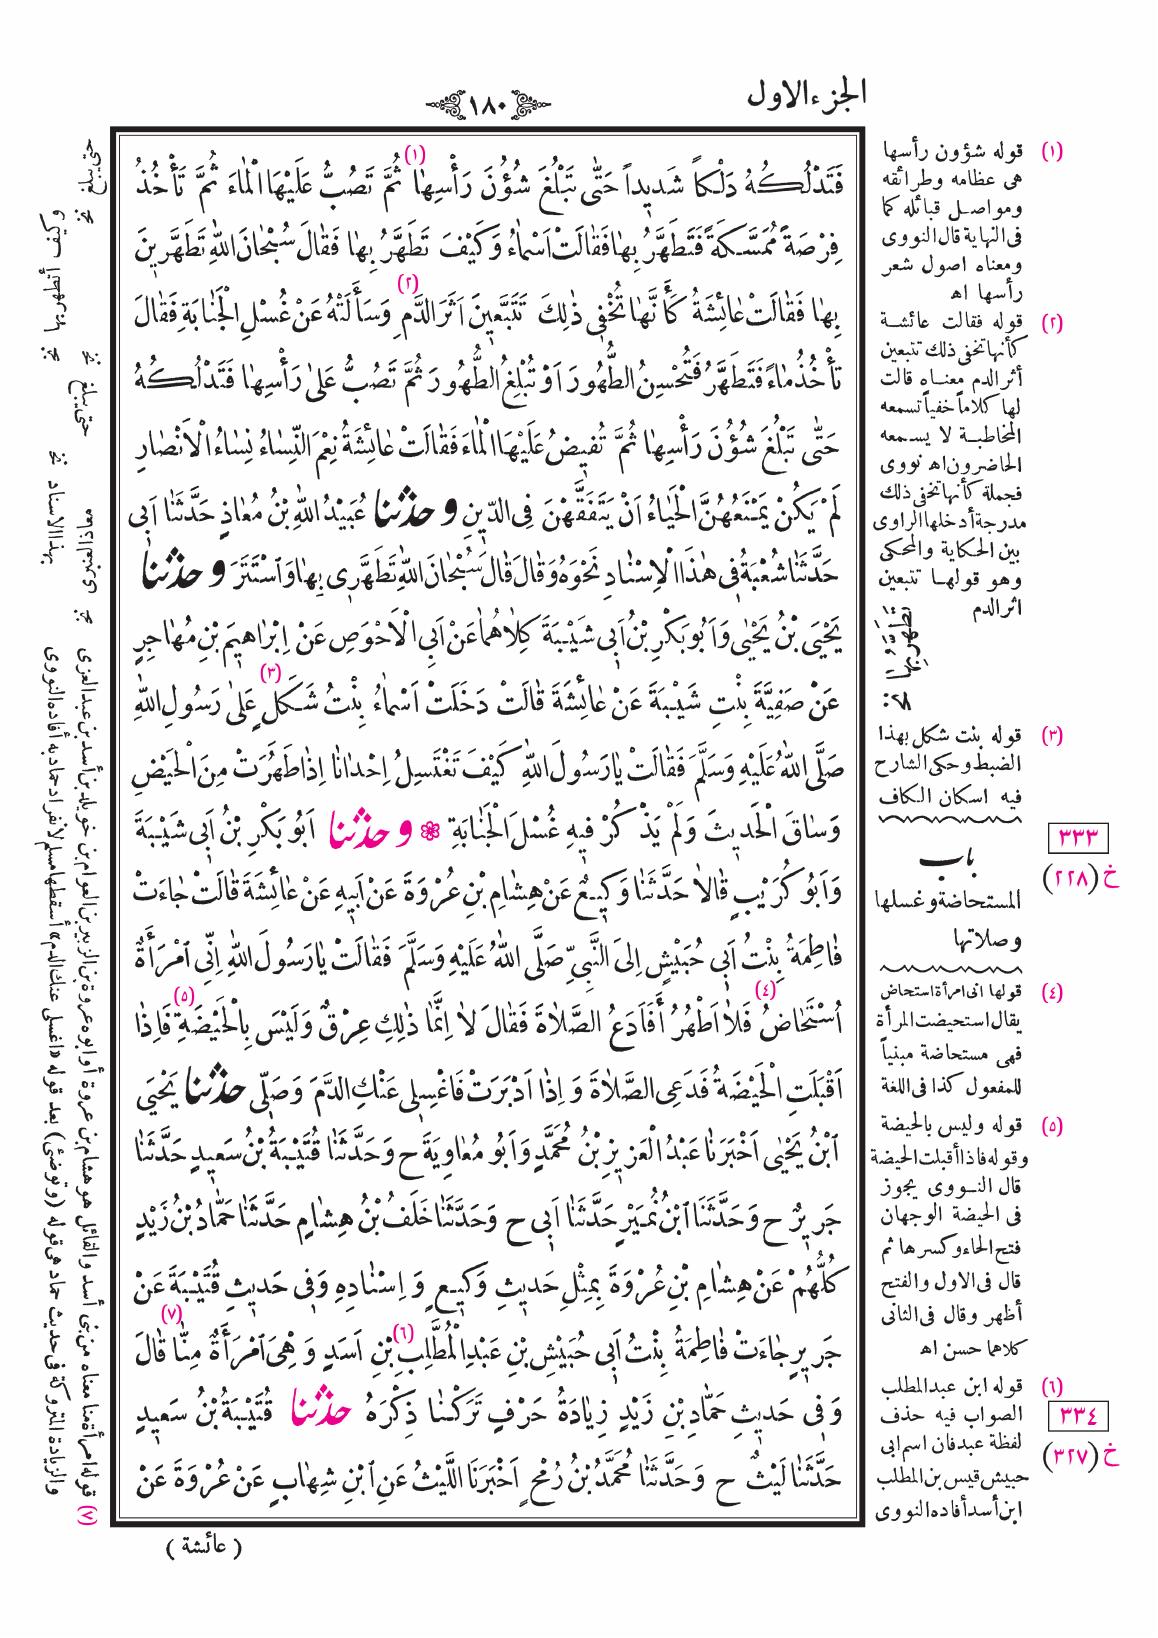 الجزء الاول
١٨٠
فَتَدْلُكُهُ دَلْكاً شَدِيداً حَتّٰى تَبْلُغَ شُؤُنَ رَأْسِهٰا (١) ثُمَّ تَصُبُّ عَلَيْهَا الْمٰاءَ ثُمَّ تَأْخُذُ
فِرْصَةً مُمَسَّكَةً فَتَطَهَّرُ بِهٰا فَقٰالَتْ اَسْمٰاءُ وَكَيْفَ تَطَهَّرُ بِهٰا فَقٰالَ سُبْحٰانَ اللّٰهِ تَطَهَّرِينَ
بِهٰا فَقٰالَتْ عٰائِشَةُ كَأَنَّهٰا تُخْفِى ذٰلِكَ (٢) تَتَبَّعِينَ اَثَرَ الدَّمِ وَسَأَلَتْهُ عَنْ غُسْلِ الْجَنٰابَةِ فَقٰالَ
تَأْخُذُ مٰاءً فَتَطَهَّرُ فَتُحْسِنُ الطُّهُورَ اَوْ تُبْلِغُ الطُّهُورَ ثُمَّ تَصُبُّ عَلىٰ رَأْسِهٰا فَتَدْلُكُهُ
حَتّٰى تَبْلُغَ شُؤُنَ رَأْسِهٰا ثُمَّ تُفِيضُ عَلَيْهَا الْمٰاءَ فَقٰالَتْ عٰائِشَةُ نِعْمَ النِّسٰاءُ نِسٰاءُ الْاَنْصٰارِ
لَمْ يَكُنْ يَمْنَعُهُنَّ الْحَيٰاءُ اَنْ يَتَفَقَّهْنَ فِى الدِّينِ و حدثنا عُبَيْدُ اللّٰهِ بْنُ مُعٰاذٍ حَدَّثَنٰا اَبِى
حَدَّثَنٰا شُعْبَةُ فِى هٰذَا الْاِسْنٰادِ نَحْوَهُ وَقٰالَ قٰالَ سُبْحٰانَ اللّٰهِ تَطَهَّرِى بِهٰا وَاسْتَتَرَ و حدثنا
يَحْيَى بْنُ يَحْيٰى وَاَبُو بَكْرِ بْنُ اَبِى شَيْبَةَ كِلاٰهُمٰا عَنْ اَبِى الْاَحْوَصِ عَنْ اِبْرٰاهِيمَ بْنِ مُهٰاجِرٍ
عَنْ صَفِيَّةَ بِنْتِ شَيْبَةَ عَنْ عٰائِشَةَ قٰالَتْ دَخَلَتْ اَسْمٰاءُ بِنْتُ شَكَلٍ (٣) عَلىٰ رَسُولِ اللّٰهِ
صَلَّى اللّٰهُ عَلَيْهِ وَسَلَّمَ فَقٰالَتْ يٰا رَسُولَ اللّٰهِ كَيْفَ تَغْتَسِلُ اِحْدٰانٰا اِذٰا طَهُرَتْ مِنَ الْحَيْضِ
وَسٰاقَ الْحَدِيثَ وَلَمْ يَذْكُرْ فِيهِ غُسْلَ الْجَنٰابَةِ و حدثنا اَبُو بَكْرِ بْنُ اَبِى شَيْبَةَ
وَاَبُو كُرَيْبٍ قٰالاٰ حَدَّثَنٰا وَكِيعٌ عَنْ هِشٰامِ بْنِ عُرْوَةَ عَنْ اَبِيهِ عَنْ عٰائِشَةَ قٰالَتْ جٰاءَتْ
فٰاطِمَةُ بِنْتُ اَبِى حُبَيْشٍ اِلَى النَّبِىِّ صَلَّى اللّٰهُ عَلَيْهِ وَسَلَّمَ فَقٰالَتْ يٰا رَسُولَ اللّٰهِ اِنِّى امْرَأَةٌ
اُسْتَحٰاضُ (٤) فَلاٰ اَطْهُرُ أَفَاَدَعُ الصَّلاٰةَ فَقٰالَ لاٰ اِنَّمٰا ذٰلِكِ عِرْقٌ وَلَيْسَ بِالْحَيْضَةِ (٥) فَاِذٰا
اَقْبَلَتِ الْحَيْضَةُ فَدَعِى الصَّلاٰةَ وَ اِذٰا اَدْبَرَتْ فَاغْسِلِى عَنْكِ الدَّمَ وَصَلِّى حدثنا يَحْيَى
ابْنُ يَحْيٰى اَخْبَرَنٰا عَبْدُ الْعَزِيزِ بْنُ مُحَمَّدٍ وَاَبُو مُعٰاوِيَةَ ح وَحَدَّثَنٰا قُتَيْبَةُ بْنُ سَعِيدٍ حَدَّثَنٰا
جَرِيرٌ ح وَحَدَّثَنَا ابْنُ نُمَيْرٍ حَدَّثَنٰا اَبِى ح وَحَدَّثَنٰا خَلَفُ بْنُ هِشٰامٍ حَدَّثَنٰا حَمّٰادُ بْنُ زَيْدٍ
كُلُّهُمْ عَنْ هِشٰامِ بْنِ عُرْوَةَ بِمِثْلِ حَدِيثِ وَكِيعٍ وَ اِسْنٰادِهِ وَفِى حَدِيثِ قُتَيْبَةَ عَنْ
جَرِيرٍ جٰاءَتْ فٰاطِمَةُ بِنْتُ اَبِى حُبَيْشِ بْنِ عَبْدِ الْمُطَّلِبِ (٦) بْنِ اَسَدٍ وَ هِىَ امْرَأَةٌ مِنّٰا (٧) قٰالَ
وَ فِى حَدِيثِ حَمّٰادِ بْنِ زَيْدٍ زِيٰادَةُ حَرْفٍ تَرَكْنٰا ذِكْرَهُ حدثنا قُتَيْبَةُ بْنُ سَعِيدٍ
حَدَّثَنٰا لَيْثٌ ح وَحَدَّثَنٰا مُحَمَّدُ بْنُ رُمْحٍ اَخْبَرَنَا اللَّيْثُ عَنِ ابْنِ شِهٰابٍ عَنْ عُرْوَةَ عَنْ
( عائشة )
(١) قوله شؤون رأسها
هى عظامه وطرائقه
ومواصل قبائله كما
فى النهاية قال النووى
ومعناه اصول شعر
رأسها اه
(٢) قوله فقالت عائشة
كأنها تخفى ذلك تتبعين
أثر الدم معناه قالت
لها كلاماً خفياً تسمعه
المخاطبة لا يسمعه
الحاضرون اه نووى
فجملة كأنها تخفى ذلك
مدرجة أدخلها الراوى
بين الحكاية والمحكى
وهو قولها تتبعين
اثر الدم
(٣) قوله بنت شكل بهذا
الضبط وحكى الشارح
فيه اسكان الكاف
٣٣٣
خ (٢٢٨)
باب
المستحاضة وغسلها
وصلاتها
(٤) قولها انى امرأة استحاض
يقال استحيضت المرأة
فهى مستحاضة مبنياً
للمفعول كذا فى اللغة
(٥) قوله وليس بالحيضة
وقوله فاذا أقبلت الحيضة
قال النووى يجوز
فى الحيضة الوجهان
فتح الحاء وكسرها ثم
قال فى الاول والفتح
أظهر وقال فى الثانى
كلاهما حسن اه
(٦) قوله ابن عبد المطلب
الصواب فيه حذف
لفظة عبد فان اسم ابى
حبيش قيس بن المطلب
ابن أسد أفاده النووى
٣٣٤
خ (٣٢٧)
حتى يبلغ
وكيف أتطهر بها
حتى يبلغ
بهذا الاسناد
(٧) قوله امرأة منا معناه من بنى أسد والقائل هو هشام بن عروة أو ابوه عروة بن الزبير بن العوام بن خويلد بن أسد بن عبد العزى
والزيادة المتروكة فى حديث حماد هى قوله (وتوضئى) بعد قوله «اغسلى عنك الدم» أسقطها مسلم لأنفراد حماد به أفاده النووى